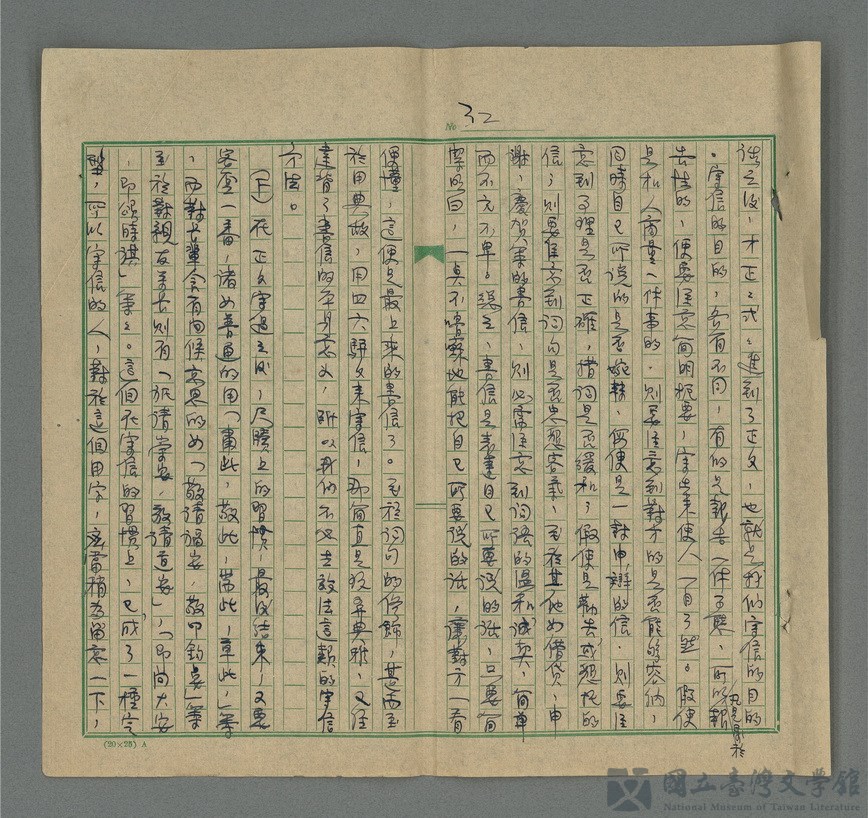 No 32
話之後，才正正式式進到了正文，也就是我們寫信的目的
。寫信的目的，各有不同，有的是報告一件事，
凡是屬於
告性的，便要注意簡明扼要，寫出來使人一目了然。假使
是和人商量一件事的，則要注意到對方的是否能夠容納，
同時自己所說的是否婉轉，假使是一封申辯的信，則要注
意到事理是否正確，措詞是否緩和，假使是勸告或懇託的
信，則要注意到詞句是否，至於其他如借貸，申
謝，慶賀等的書信，則必需注意到詞語的溫和誠摯，簡單
而不冗不卑。總之，書信是表達自己所要說的話，只要簡
潔明白，一點不嚕囌地能把自己所要說的話，讓對方一看
便懂，這便是最上乘的書信了。至於詞句的修飾，甚而至
於用典故，用四六駢文來寫信，那簡直是玩弄典雅，又往
違背了書信的本身意義，所以我們不必去效法這類的寫信
方法。
（下）在正文寫過之後，尺牘上的習慣，最後結束，又要
客套一番，諸如普通的用「肅此，敬此，專此，草此，」等
，而對長輩含有問候意思的如「敬請福安，敬叩鈞安」等
至於對親友等長則有「祗請崇安，敬請道安」，「即尚大安
，即頌時祺」等之。這個在寫信的習慣上，已成了一種定
型，所以寫信的人，對於這個用字，應當稍為留意一下，
(20×25) A
國立臺灣文學館
National Museum of Taiwan Literature